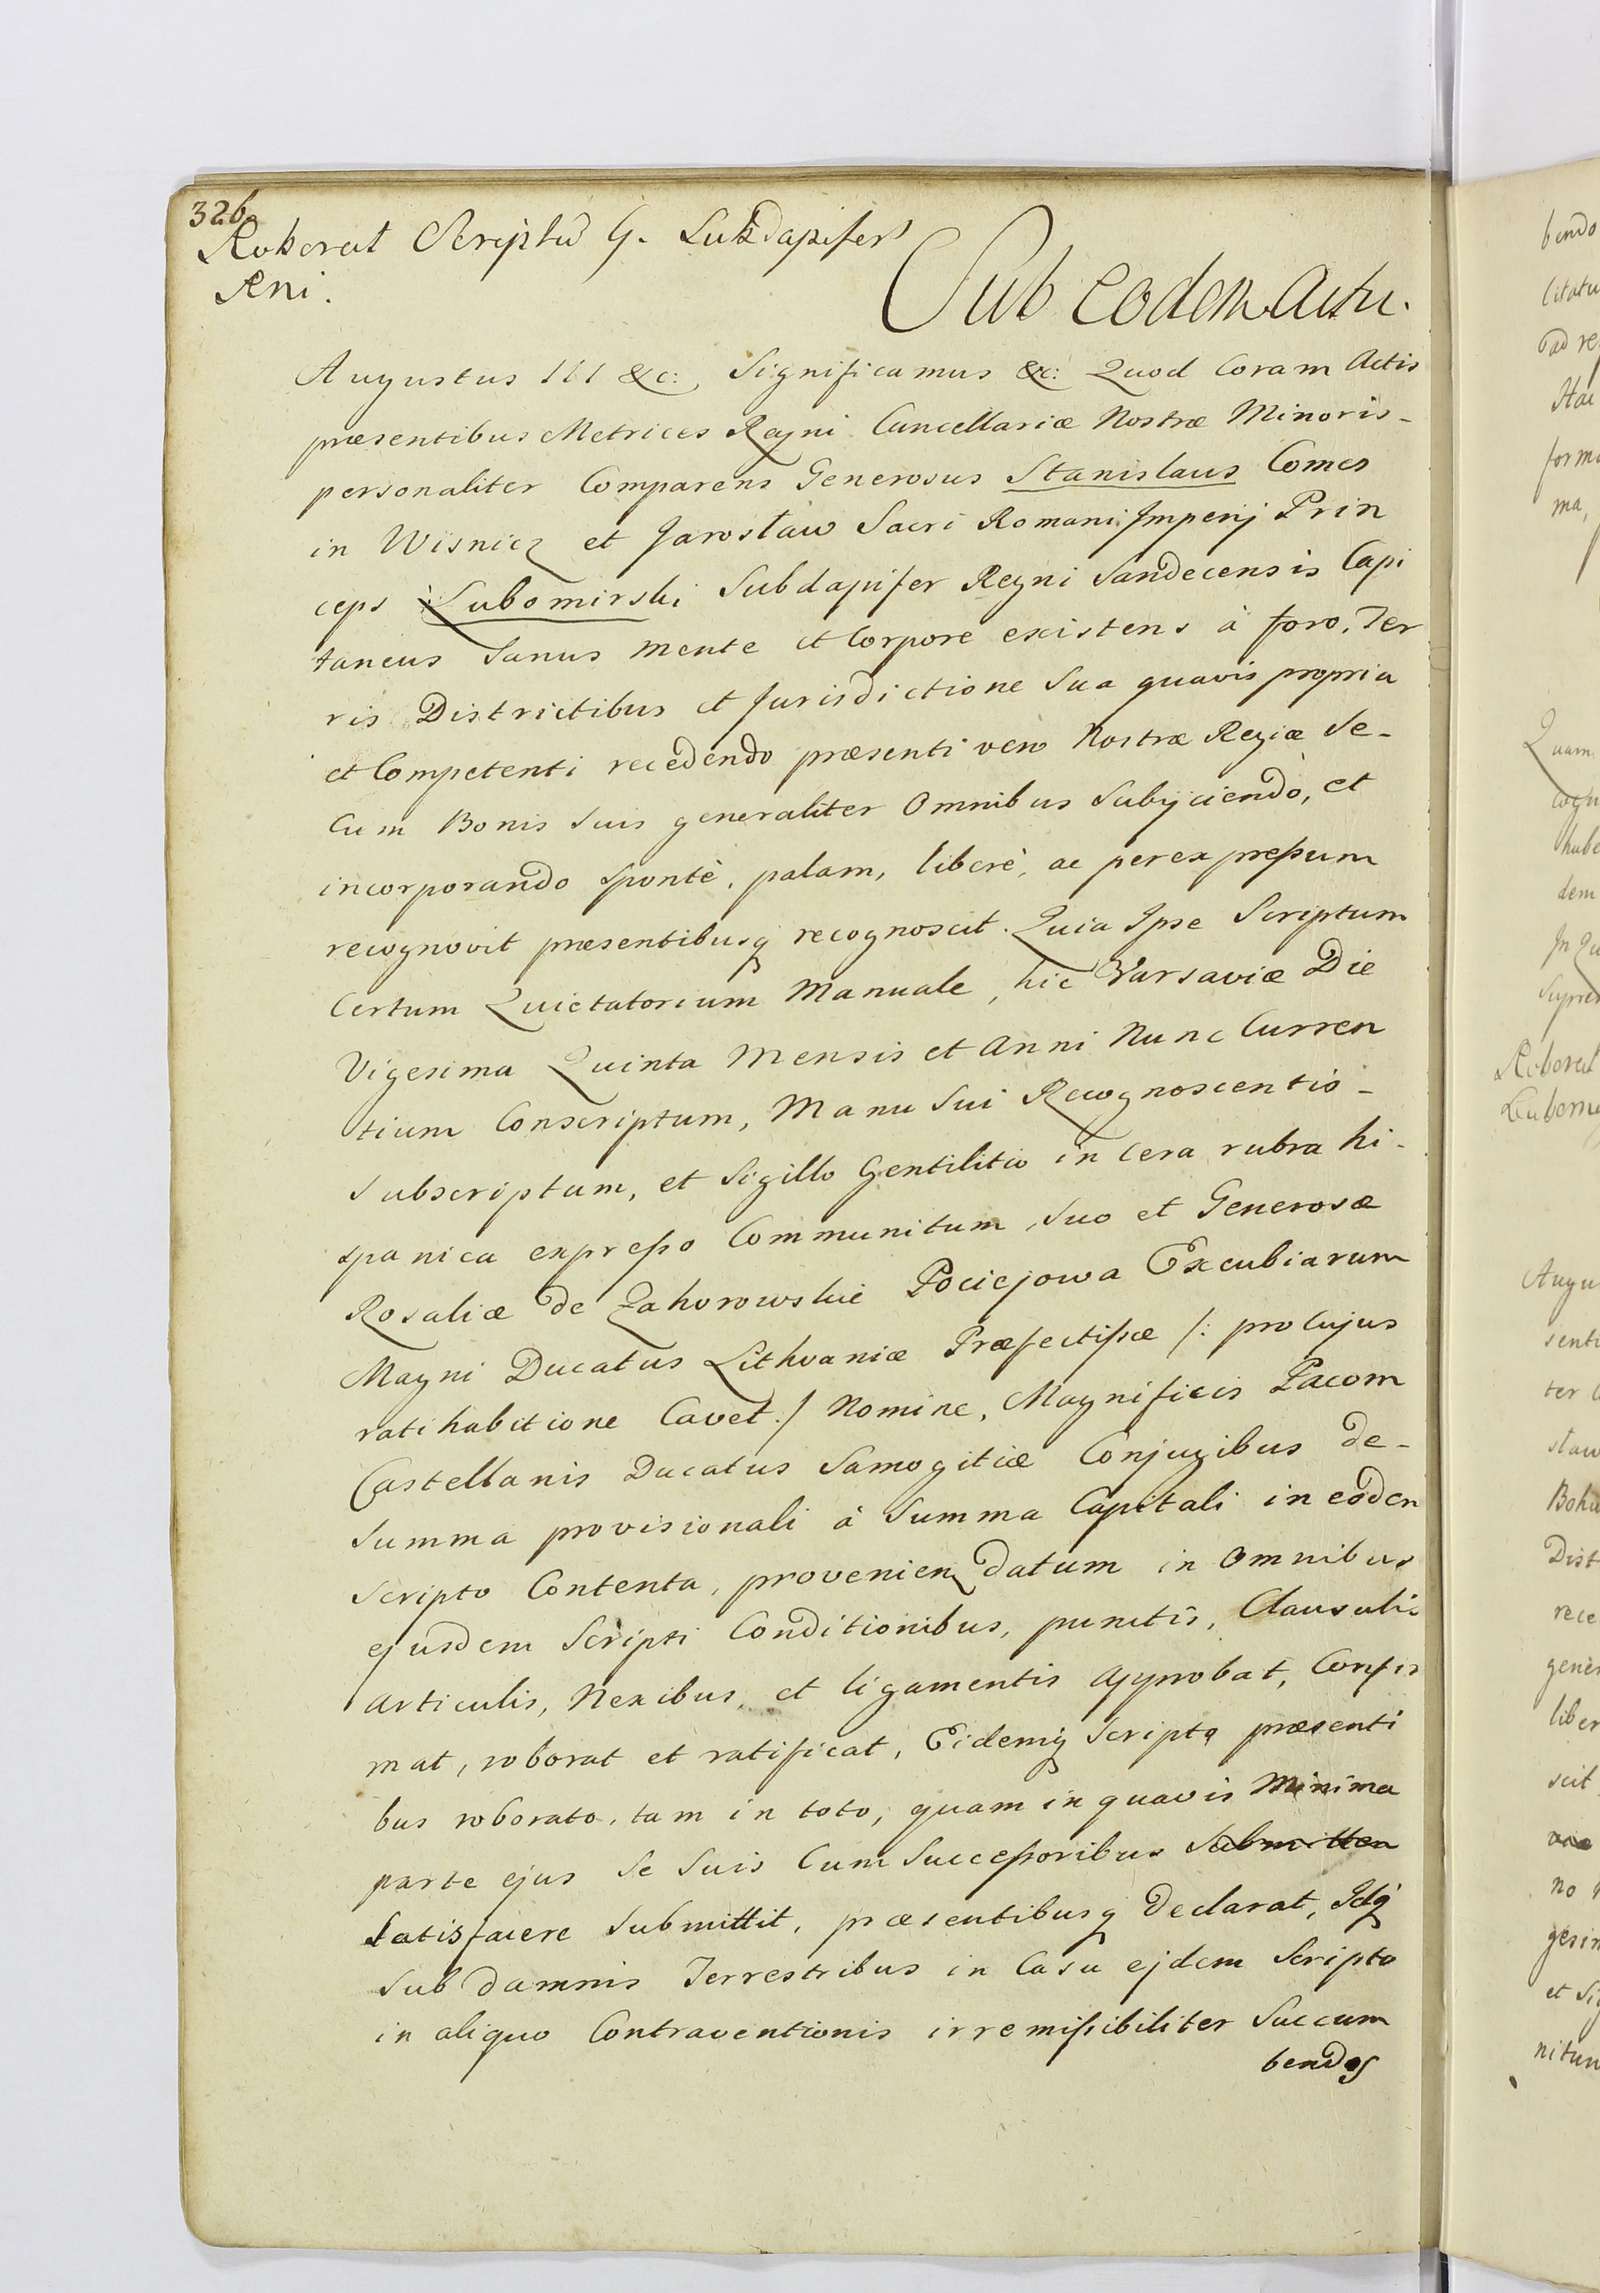 326
Roborat Scriptū G. Subdapifer
Rni.
Sub eodem Actu.
Augustus III &c: Significamus &c: Quod Coram Actis
præsentibus Metrices Regni Cancellariæ Nostræ Minoris-
personaliter Comparens Generosus Stanislaus Comes
in Wisnicz et Jarosław Sacri Romani Imperij Prin
ceps Lubomirski Subdapifer Regni Sandecensis Capi
taneus Sanus mente et Corpore existens à foro, Ter
ris Districtibus et Jurisdictione Sua quavis propria
et Competenti recedendo præsenti vero Nostræ Regiæ Se-
Cum Bonis Suis generaliter Omnibus Subijciendo, et
incorporando spontè, palam, liberè, ac per expreſsum
recognovit præsentibusq recognoscit. Quia Ipse Scriptum
Certum Quietatorium Manuale, hic Varsaviæ Die
Vigesima Quinta Mensis et Anni Nunc Curren
tium Conscriptum, Manu Sui Recognoscentis-
Subscriptum, et Sigillo Gentilitio in Cera rubra hi-
spanica expreſso Communitum, Suo et Generosæ
Rosaliæ de Zahorowskie Pociejowa Excubiarum
Magni Ducatus Lithvaniæ Præfectiſsæ /: pro Cujus
ratihabitione Cavet :/ Nomine, Magnificis Pacom
Castellanis Ducatus Samogitiæ Conjugibus de-
Summa provisionali à Summa Capitali in eodem
Scripto Contenta, provenien datum in Omnibus
ejusdem Scripti Conditionibus, punctis, Clausulis
articulis, Nexibus, et ligamentis approbat, Confir
mat, roborat et ratificat, Eidemq Scripto præsenti
bus roborato, tam in toto, quam in quavis Minima
parte ejus Se Suis Cum Succeſsoribus Submitten
Satisfacere Submittit, præsentibusq declarat, Idq
Sub damnis Terrestribus in Casu ejdem Scripto
in aliquo Contraventionis irremiſsibiliter Succum
bendos
bendo
ad re
forma
ma,
Quam
dem
In Qu
Roborat
Augu
senti
ter
staw
Dist
rece
liber
scit
no
gesim
et Sig
nitum